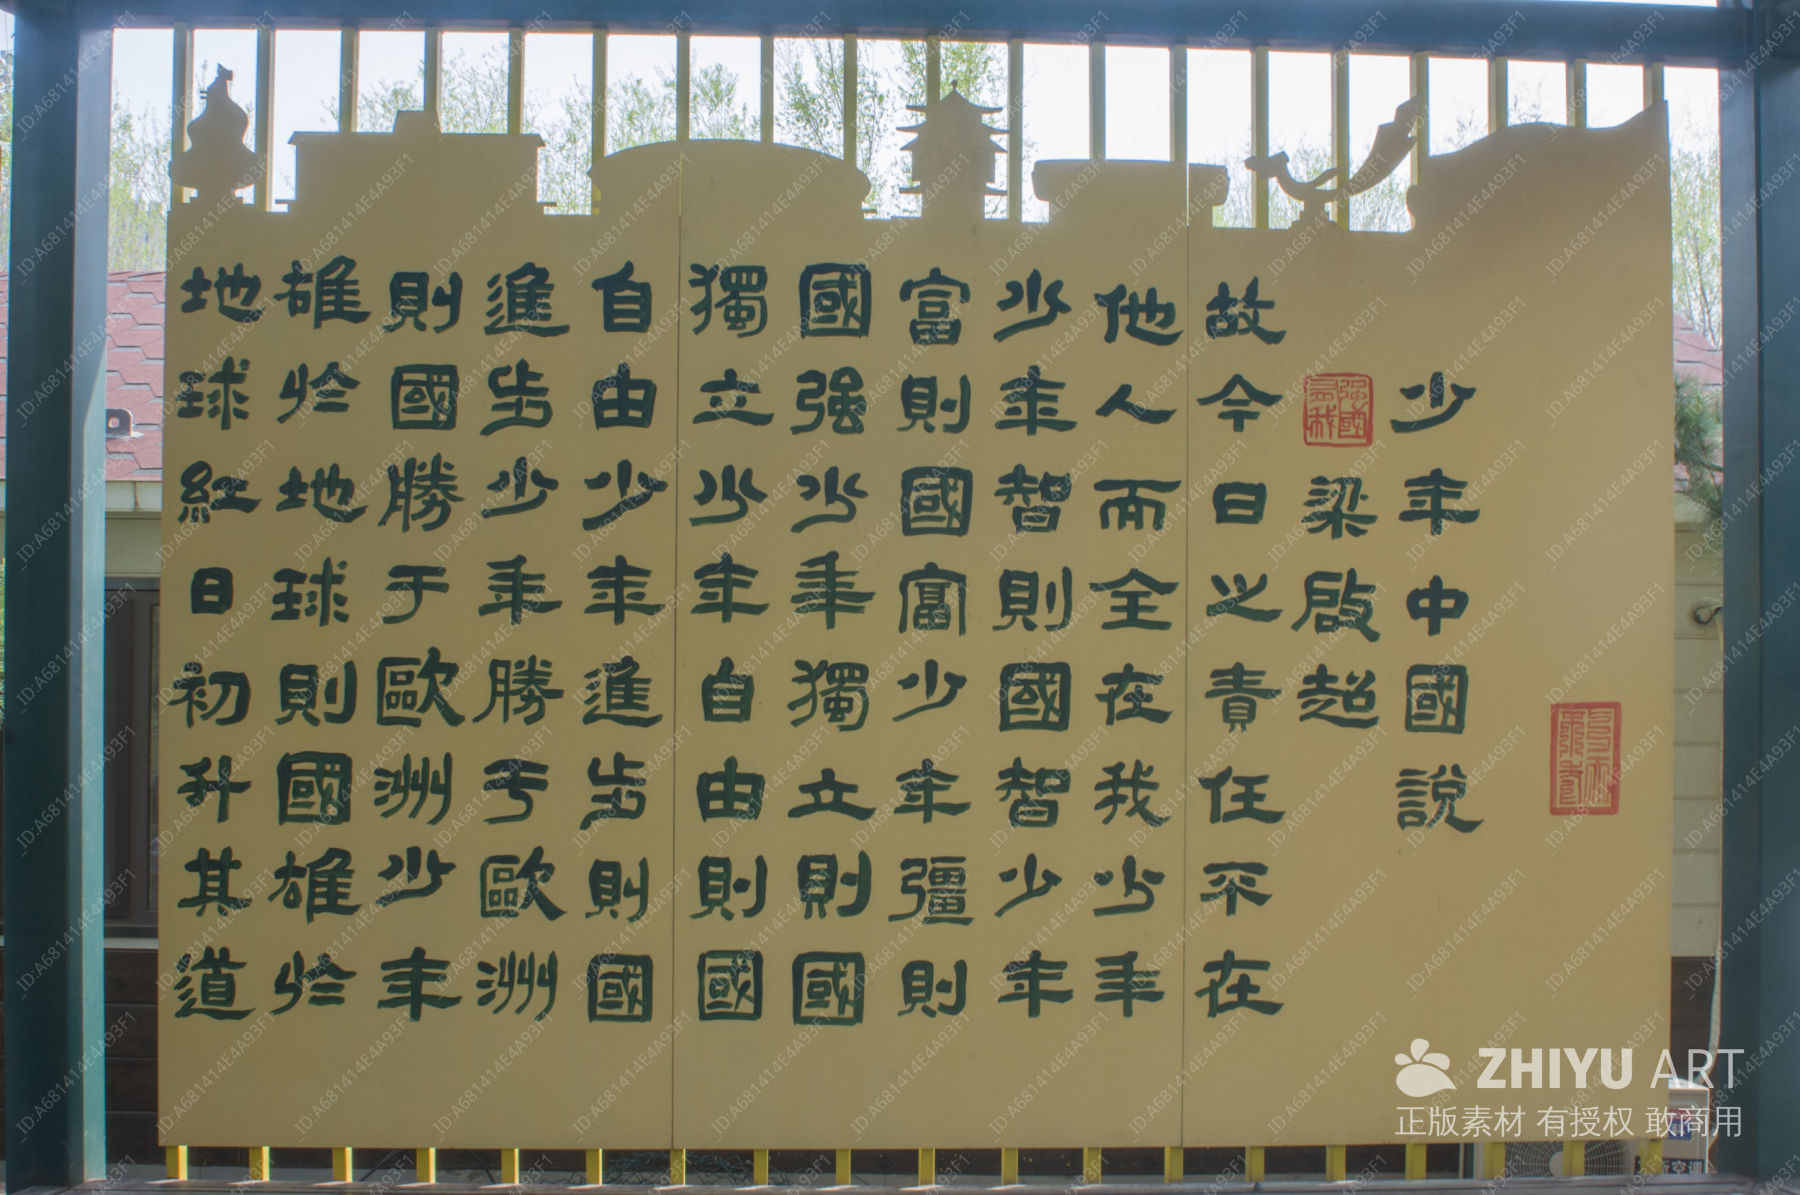 少年中國說
强國
梁啟超
故今日之責任不在
他人而全在我少年
少年智則國智少年
富則國富少年彊則
國强少年獨立則國
獨立少年自由則國
自由少年進步則國
進步少年勝亏歐洲
則國勝于歐洲少年
雄於地球則國雄於
地球紅日初升其道
ZHIYU ART
正版素材 有授权 敢商用
ID:A681414E4A93F1